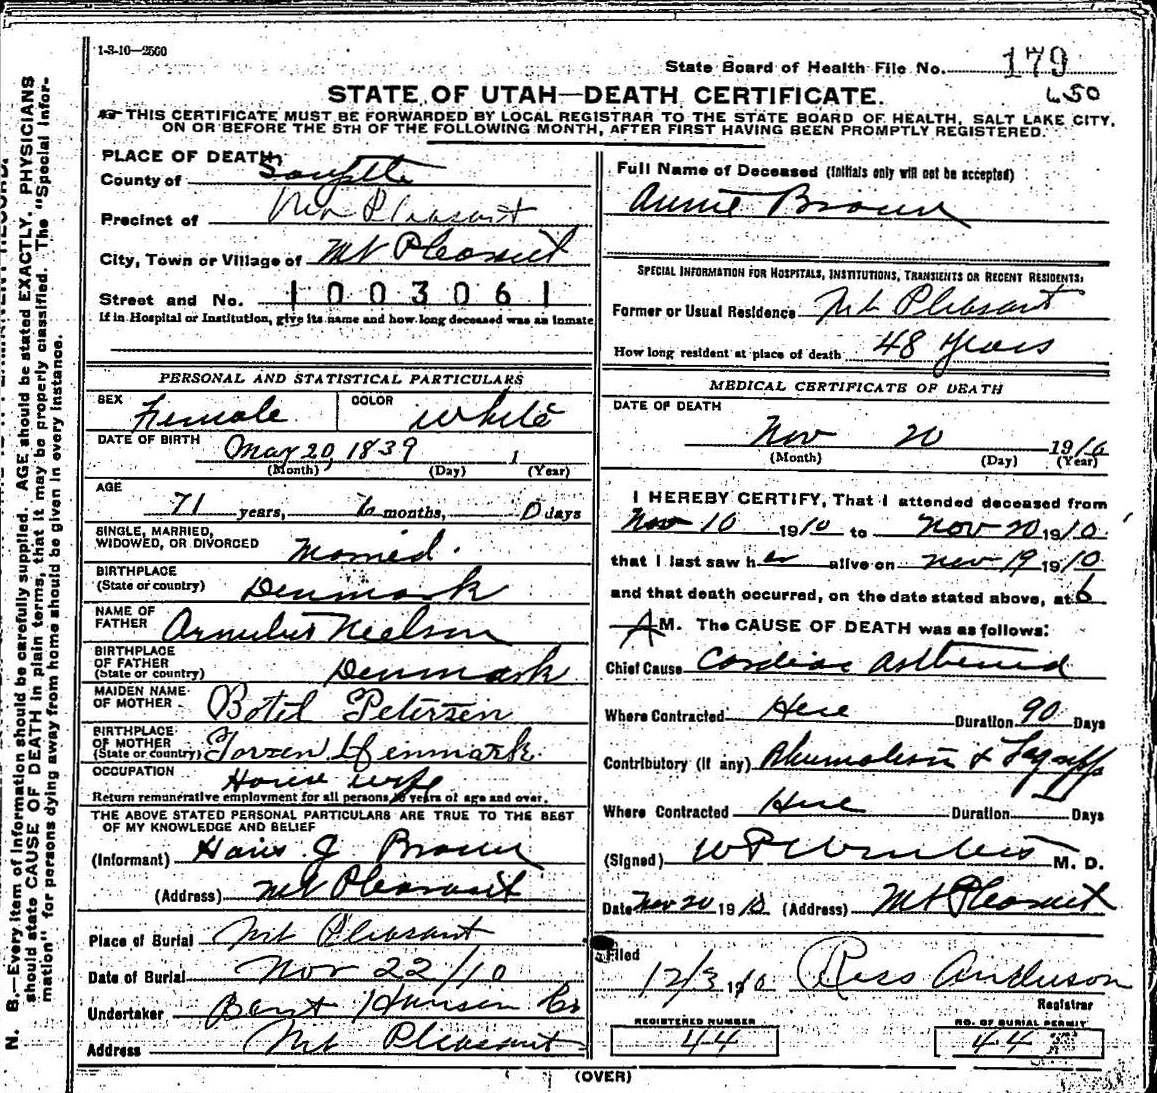 1-3-10—2500
State Board of Health File No. 179
450
STATE OF UTAH—DEATH CERTIFICATE.
THIS CERTIFICATE MUST BE FORWARDED BY LOCAL REGISTRAR TO THE STATE BOARD OF HEALTH, SALT LAKE CITY,
ON OR BEFORE THE 5TH OF THE FOLLOWING MONTH, AFTER FIRST HAVING BEEN PROMPTLY REGISTERED.
PLACE OF DEATH,
County of
Precinct of Mt Pleasant
City, Town or Village of Mt Pleasant
Street and No. 1003061
If in Hospital or Institution, give its name and how long deceased was an inmate
PERSONAL AND STATISTICAL PARTICULARS
SEX Female COLOR White
DATE OF BIRTH May 20, 1839 1
(Month) (Day) (Year)
AGE
71 years, 6 months, 0 days
SINGLE, MARRIED,
WIDOWED, OR DIVORCED Married.
BIRTHPLACE
(State or country) Denmark
NAME OF
FATHER Neelson
BIRTHPLACE
OF FATHER
(State or country) Denmark
MAIDEN NAME
OF MOTHER Botil Petersen
BIRTHPLACE
OF MOTHER
(State or country) Denmark.
OCCUPATION House wife
Return remunerative employment for all persons 10 years of age and over.
THE ABOVE STATED PERSONAL PARTICULARS ARE TRUE TO THE BEST
OF MY KNOWLEDGE AND BELIEF
(Informant) Hans J Brown
(Address) Mt Pleasant
Place of Burial Mt Pleasant
Date of Burial Nov 22/10
Undertaker Hansen Co
Address Mt Pleasant
Full Name of Deceased (Initials only will not be accepted)
Annie Brown
SPECIAL INFORMATION FOR HOSPITALS, INSTITUTIONS, TRANSIENTS OR RECENT RESIDENTS:
Former or Usual Residence Mt Pleasant
How long resident at place of death 48 years
MEDICAL CERTIFICATE OF DEATH
DATE OF DEATH
Nov 20 1910
(Month) (Day) (Year)
I HEREBY CERTIFY, That I attended deceased from
Nov 10 1910 to Nov 20 1910
that I last saw her alive on Nov 19 1910
and that death occurred, on the date stated above, at 6
A M. The CAUSE OF DEATH was as follows:
Chief Cause Cardiac Asthenia
Where Contracted Here Duration 90 Days
Contributory (if any) Rheumatism & Lagrippe
Where Contracted Here Duration Days
(Signed) M. D.
Date Nov 20 1910 (Address) Mt Pleasant
Filed
12/3 1910 Ross Anderson
Registrar
REGISTERED NUMBER
44
NO. OF BURIAL PERMIT
44
(OVER)
N. B.—Every item of information should be carefully supplied. AGE should be stated EXACTLY. PHYSICIANS
should state CAUSE OF DEATH in plain terms, that it may be properly classified. The "Special Infor-
mation" for persons dying away from home should be given in every instance.